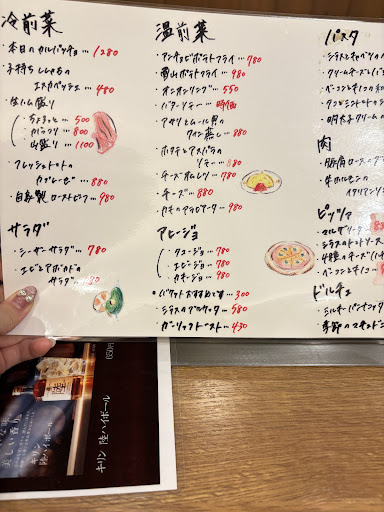 冷前菜
・本日のカルパッチョ… 1280
・子持ちししゃもの
エスカベッシュ … 480
・生ハム盛り
ちょっと … 500
がっつり … 800
山盛り … 1100
・フレッシュトマトの
カプレーゼ … 880
・自家製 ローストビーフ … 980
サラダ
・シーザーサラダ … 780
・エビとアボカドの
サラダ … 880
温前菜
・アンチョビポテトフライ … 780
・雪山ポテトフライ … 980
・オニオンリング … 550
・バターソテー … 時価
・アサリとムール貝の
ワイン蒸し … 880
・ホタテとアスパラの
ソテー … 880
・チーズオムレツ … 780
・チーズ … 880
・カキのアラビアータ … 980
アヒージョ
・エビージョ … 780
・カキージョ … 980
・バケットおすすめです … 300
・シラスのブルスケッタ … 580
・ガーリックトースト … 430
パスタ
・シラスとキャベツの
・クリームチーズと
・ベーコンとキノコの和
・明太子クリーム
肉
・豚肩ロース
・牛ホルモンの
イタリアン
ピッツァ
・マルゲリータ
・シラスのトマトソース
・4種のチーズ
・ベーコンとキノコ
ドルチェ
・ミルキーパンナコッタ
・季節の
キリン 陸ハイボール
650円
キリン
陸ハイボール
陸